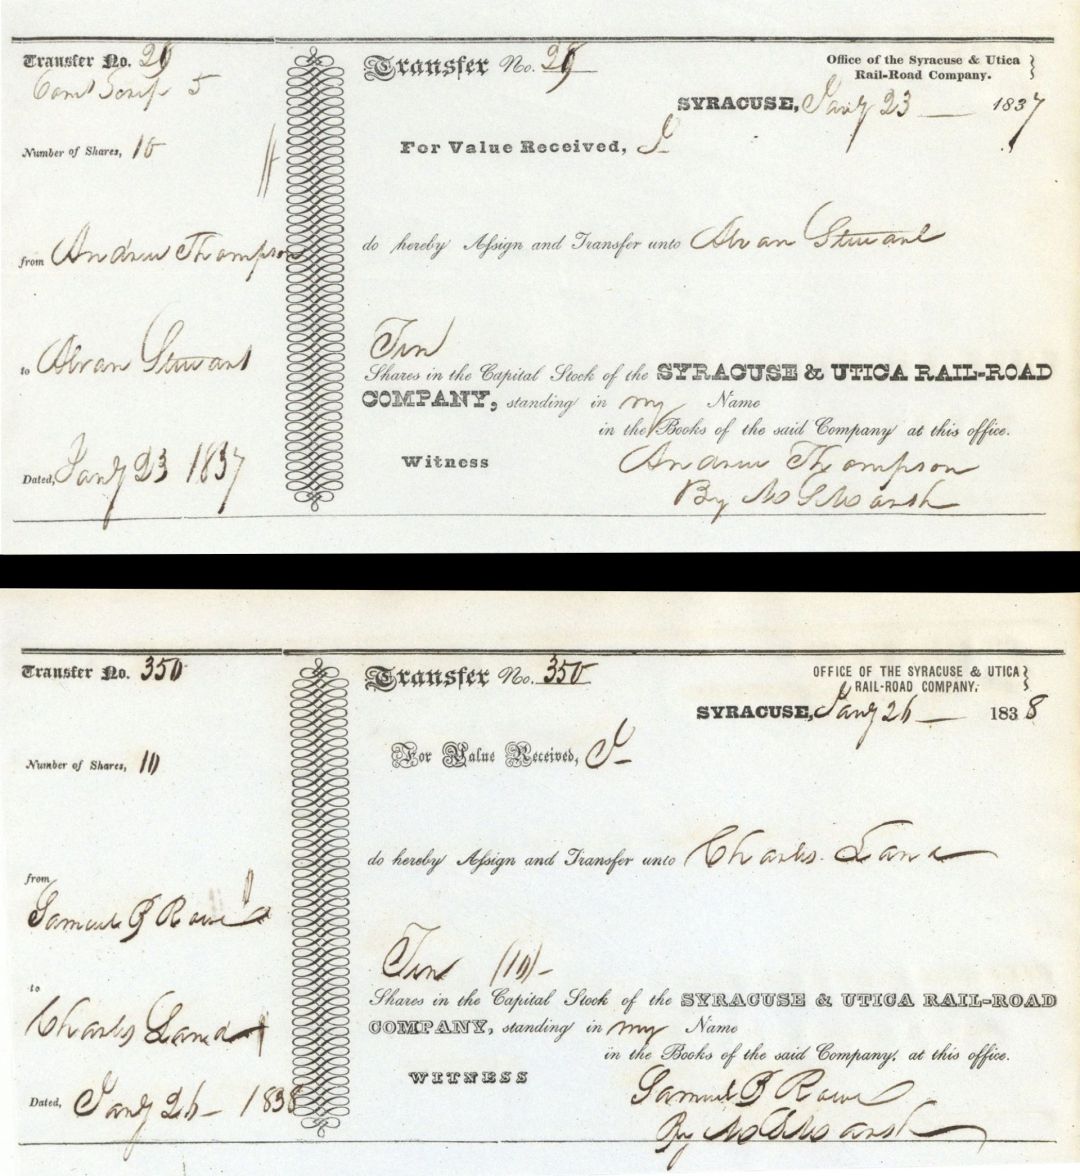 Transfer No. 20
Comd Scrip 5
Number of Shares, 10
from Andrew Thompson
to Alvan Stewart
Dated, Jany 23 1837
Transfer No. 20
Office of the Syracuse & Utica
Rail-Road Company.
SYRACUSE, Jany 23 1837
For Value Received, I
do hereby Assign and Transfer unto Alvan Stewart
Ten
Shares in the Capital Stock of the SYRACUSE & UTICA RAIL-ROAD
COMPANY, standing in my Name
in the Books of the said Company at this office.
Witness
Andrew Thompson
By M S Marsh
Transfer No. 350
Number of Shares, 10
from
Samuel B Rowe
to
Charles Land
Dated, Jany 26 1838
Transfer No. 350
OFFICE OF THE SYRACUSE & UTICA
RAIL-ROAD COMPANY.
SYRACUSE, Jany 26 1838
For Value Received, I
do hereby Assign and Transfer unto Charles Land
Ten (10)
Shares in the Capital Stock of the SYRACUSE & UTICA RAIL-ROAD
COMPANY, standing in my Name
in the Books of the said Company, at this office.
WITNESS
Samuel B Rowe
By M S Marsh